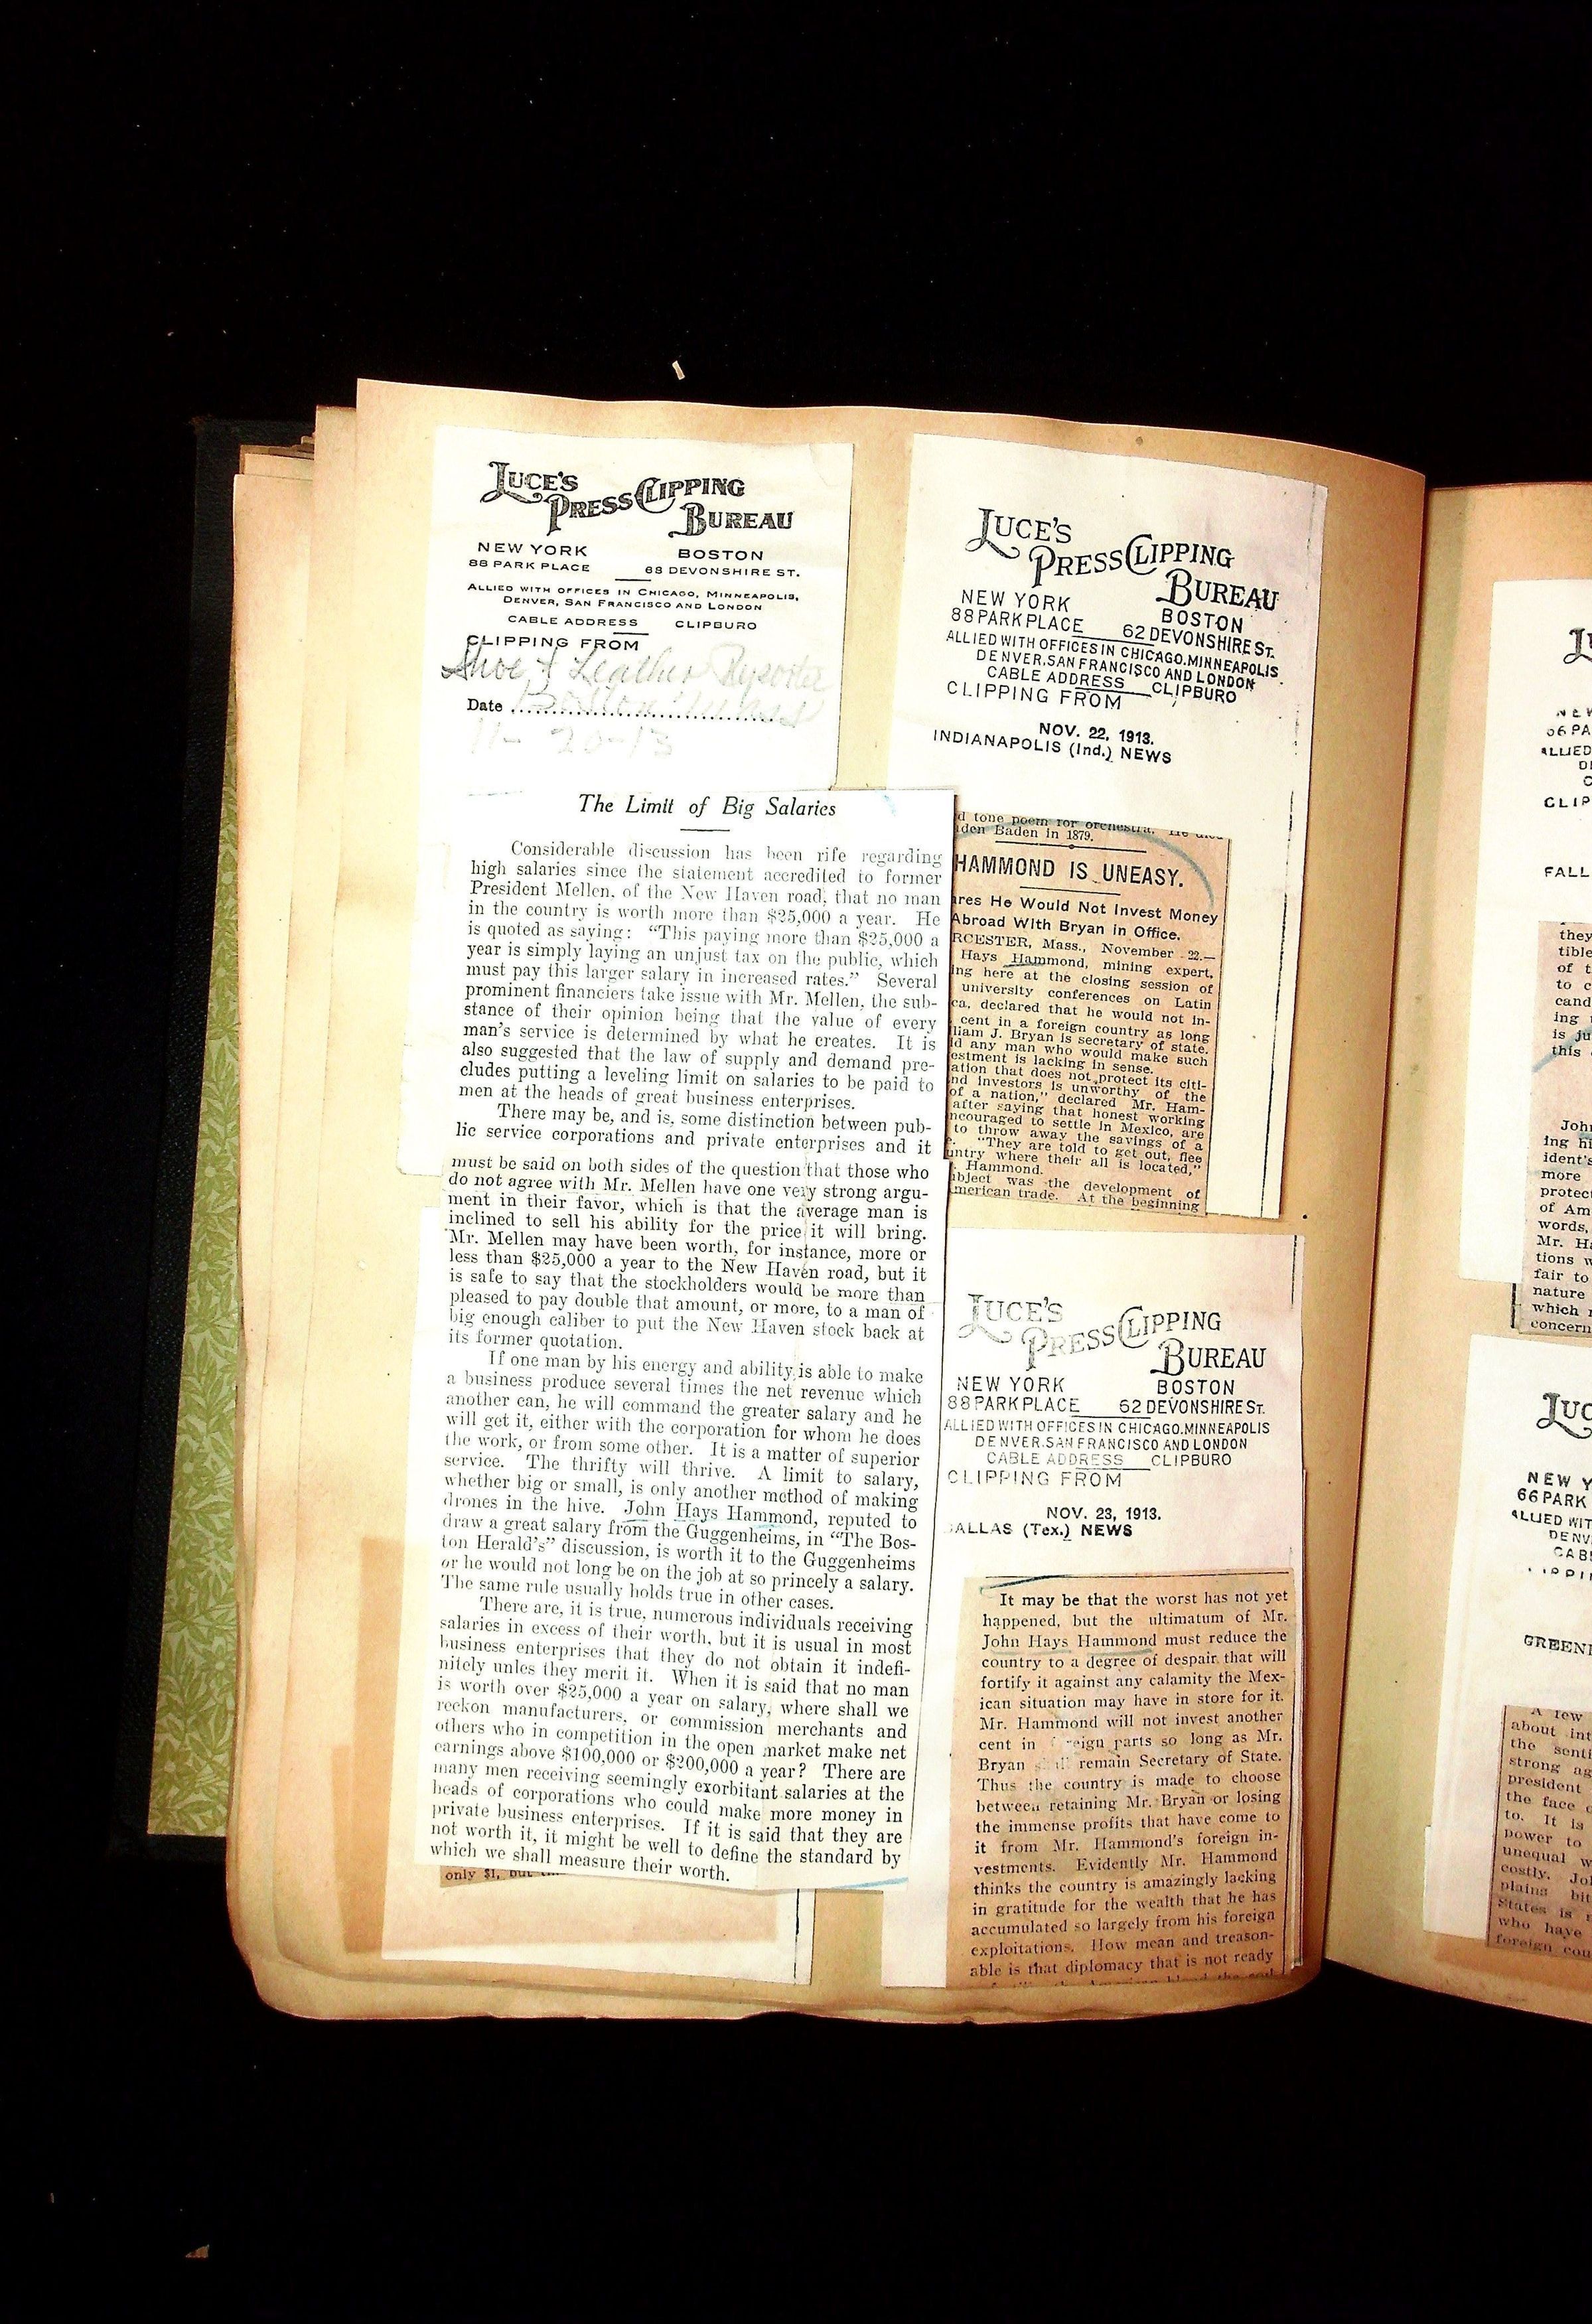 LUCE'S
PRESS CLIPPING
BUREAU
NEW YORK BOSTON
88 PARK PLACE 68 DEVONSHIRE ST.
ALLIED WITH OFFICES IN CHICAGO, MINNEAPOLIS,
DENVER, SAN FRANCISCO AND LONDON
CABLE ADDRESS CLIPBURO
CLIPPING FROM
Shoe & Leather Reporter
Date Boston Mass
11-20-13
The Limit of Big Salaries
Considerable discussion has been rife regarding
high salaries since the statement accredited to former
President Mellen, of the New Haven road, that no man
in the country is worth more than $25,000 a year. He
is quoted as saying: "This paying more than $25,000 a
year is simply laying an unjust tax on the public, which
must pay this larger salary in increased rates." Several
prominent financiers take issue with Mr. Mellen, the sub-
stance of their opinion being that the value of every
man's service is determined by what he creates. It is
also suggested that the law of supply and demand pre-
cludes putting a leveling limit on salaries to be paid to
men at the heads of great business enterprises.
There may be, and is, some distinction between pub-
lic service corporations and private enterprises and it
must be said on both sides of the question that those who
do not agree with Mr. Mellen have one very strong argu-
ment in their favor, which is that the average man is
inclined to sell his ability for the price it will bring.
Mr. Mellen may have been worth, for instance, more or
less than $25,000 a year to the New Haven road, but it
is safe to say that the stockholders would be more than
pleased to pay double that amount, or more, to a man of
big enough caliber to put the New Haven stock back at
its former quotation.
If one man by his energy and ability is able to make
a business produce several times the net revenue which
another can, he will command the greater salary and he
will get it, either with the corporation for whom he does
the work, or from some other. It is a matter of superior
service. The thrifty will thrive. A limit to salary,
whether big or small, is only another method of making
drones in the hive. John Hays Hammond, reputed to
draw a great salary from the Guggenheims, in "The Bos-
ton Herald's" discussion, is worth it to the Guggenheims
or he would not long be on the job at so princely a salary.
The same rule usually holds true in other cases.
There are, it is true, numerous individuals receiving
salaries in excess of their worth, but it is usual in most
business enterprises that they do not obtain it indefi-
nitely unles they merit it. When it is said that no man
is worth over $25,000 a year on salary, where shall we
reckon manufacturers, or commission merchants and
others who in competition in the open market make net
earnings above $100,000 or $200,000 a year? There are
many men receiving seemingly exorbitant salaries at the
heads of corporations who could make more money in
private business enterprises. If it is said that they are
not worth it, it might be well to define the standard by
which we shall measure their worth.
only $1, but
LUCE'S
PRESS CLIPPING
BUREAU
NEW YORK BOSTON
88 PARK PLACE 62 DEVONSHIRE ST.
ALLIED WITH OFFICES IN CHICAGO. MINNEAPOLIS
DENVER. SAN FRANCISCO AND LONDON
CABLE ADDRESS CLIPBURO
CLIPPING FROM
NOV. 22, 1913.
INDIANAPOLIS (Ind.) NEWS
d tone poem for orchestra. He died
den Baden in 1879.
HAMMOND IS UNEASY.
ares He Would Not Invest Money
Abroad With Bryan in Office.
RCESTER, Mass., November 22.—
Hays Hammond, mining expert,
ing here at the closing session of
university conferences on Latin
ca, declared that he would not in-
cent in a foreign country as long
liam J. Bryan is secretary of state.
d any man who would make such
estment is lacking in sense.
ation that does not protect its citi-
nd investors is unworthy of the
of a nation," declared Mr. Ham-
after saying that honest working
ncouraged to settle in Mexico, are
to throw away the savings of a
"They are told to get out, flee
untry where their all is located,"
. Hammond.
bject was the development of
merican trade. At the beginning
LUCE'S
PRESS CLIPPING
BUREAU
NEW YORK BOSTON
88 PARK PLACE 62 DEVONSHIRE ST.
ALLIED WITH OFFICES IN CHICAGO. MINNEAPOLIS
DENVER. SAN FRANCISCO AND LONDON
CABLE ADDRESS CLIPBURO
CLIPPING FROM
NOV. 23, 1913.
ALLAS (Tex.) NEWS
It may be that the worst has not yet
happened, but the ultimatum of Mr.
John Hays Hammond must reduce the
country to a degree of despair that will
fortify it against any calamity the Mex-
ican situation may have in store for it.
Mr. Hammond will not invest another
cent in eign parts so long as Mr.
Bryan remain Secretary of State.
Thus the country is made to choose
between retaining Mr. Bryan or losing
the immense profits that have come to
it from Mr. Hammond's foreign in-
vestments. Evidently Mr. Hammond
thinks the country is amazingly lacking
in gratitude for the wealth that he has
accumulated so largely from his foreign
exploitations. How mean and treason-
able is that diplomacy that is not ready
NEW
66 PA
ALLIED
CLIP
FALL
they
tible
of t
to c
cand
ing
is ju
this
John
ing hi
ident's
more
protec
of Am
words,
Mr. Ha
tions w
fair to
nature
which
concern
LUC
NEW Y
66 PARK
ALLIED WIT
DENV
CAB
GREEN
A few
about int
the senti
strong ag
president
the face
to. It is
power to
unequal w
costly. Jo
plains bit
States is
who have
foreign cou